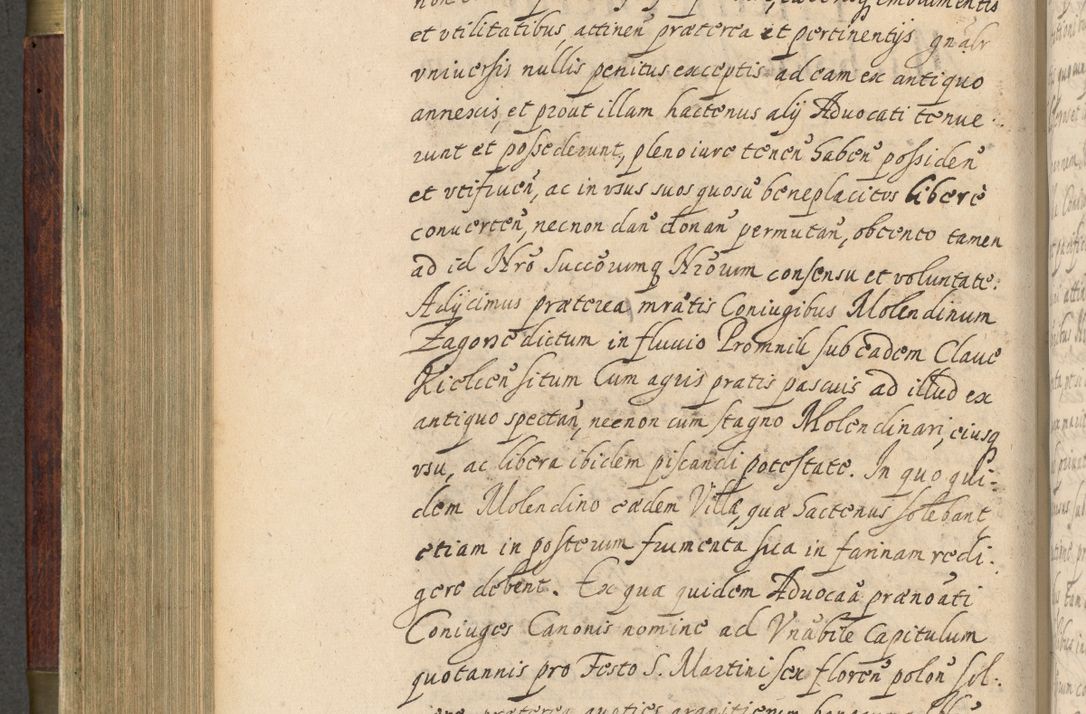 et vtilitatibus, attinen̄ præterea et pertinentijs gn̄alr
vniuersis nullis penitus exceptis ad eam ex antiquo
annexis, et prout illam hactenus alij Aduocati tenue
runt et possederunt, pleno iure tenen̄ haben̄ possiden̄
et vtifruen̄, ac in vsus suos quosuis beneplacitos liberè
conuerten̄, necnon dan̄ donan̄ permutan̄, obtento tamen
ad id Nrō Succōrumq Nrōrum consensu et voluntate.
Adijcimus præterea mrātis Coniugibus Molendinum
Zagorze dictum in fluuio Promnik sub eadem Claue
Kielcen̄ situm Cum agris pratis pascuis ad illud ex
antiquo spectan̄, necnon cum stagno Molendinari, eiusq
vsu, ac libera ibidem piscandi potestate. In quo qui-
dem Molendino eædem Villa, quæ hactenus solebant
etiam in posterum frumenta sua in farinam redi-
gere debent. Ex qua quidem Aduocaā prænoāti
Coniuges Canonis nomine ad Vnābile Capitulum
quotannis pro Festo S. Martini sex floren̄ polon̄ sol-